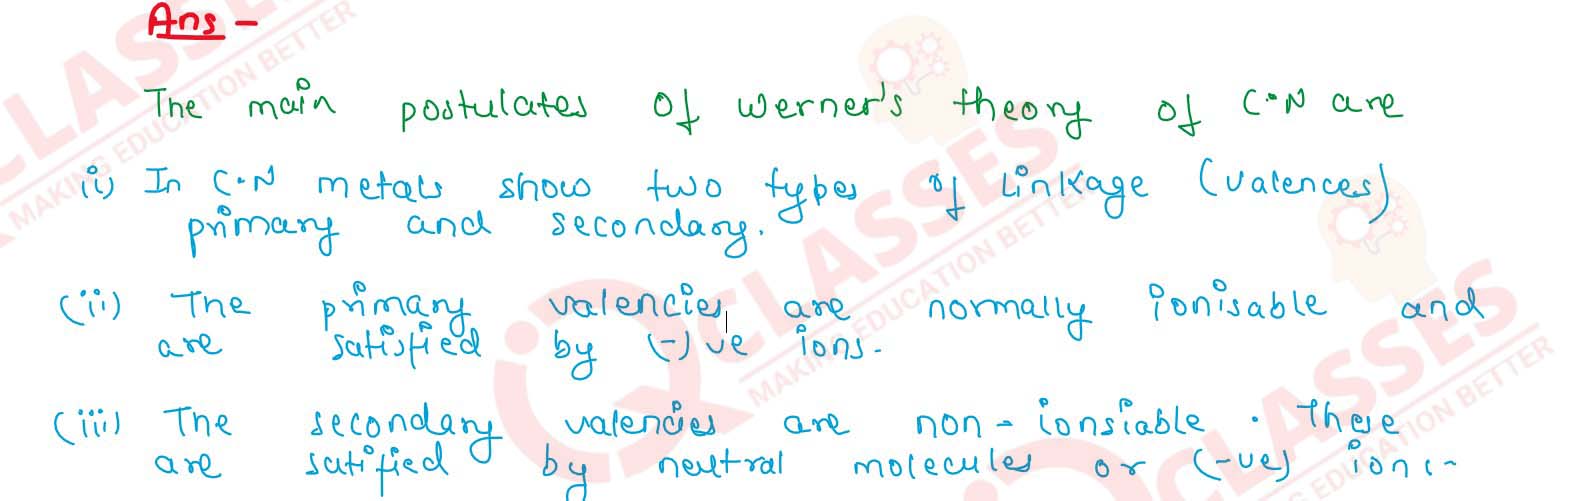 Ans -
The main postulates of Werner's theory of C.N are
(i) In C.N metals show two types of Linkage (valences)
primary and secondary.
(ii) The primary valencies are normally ionisable and
are satisfied by (-)ve ions.
(iii) The secondary valencies are non-ionsiable. These
are satified by neutral molecules or (-ve) ions-
CLASSES
MAKING EDUCATION BETTER
CLASSES
MAKING EDUCATION BETTER
CLASSES
EDUCATION BETTER